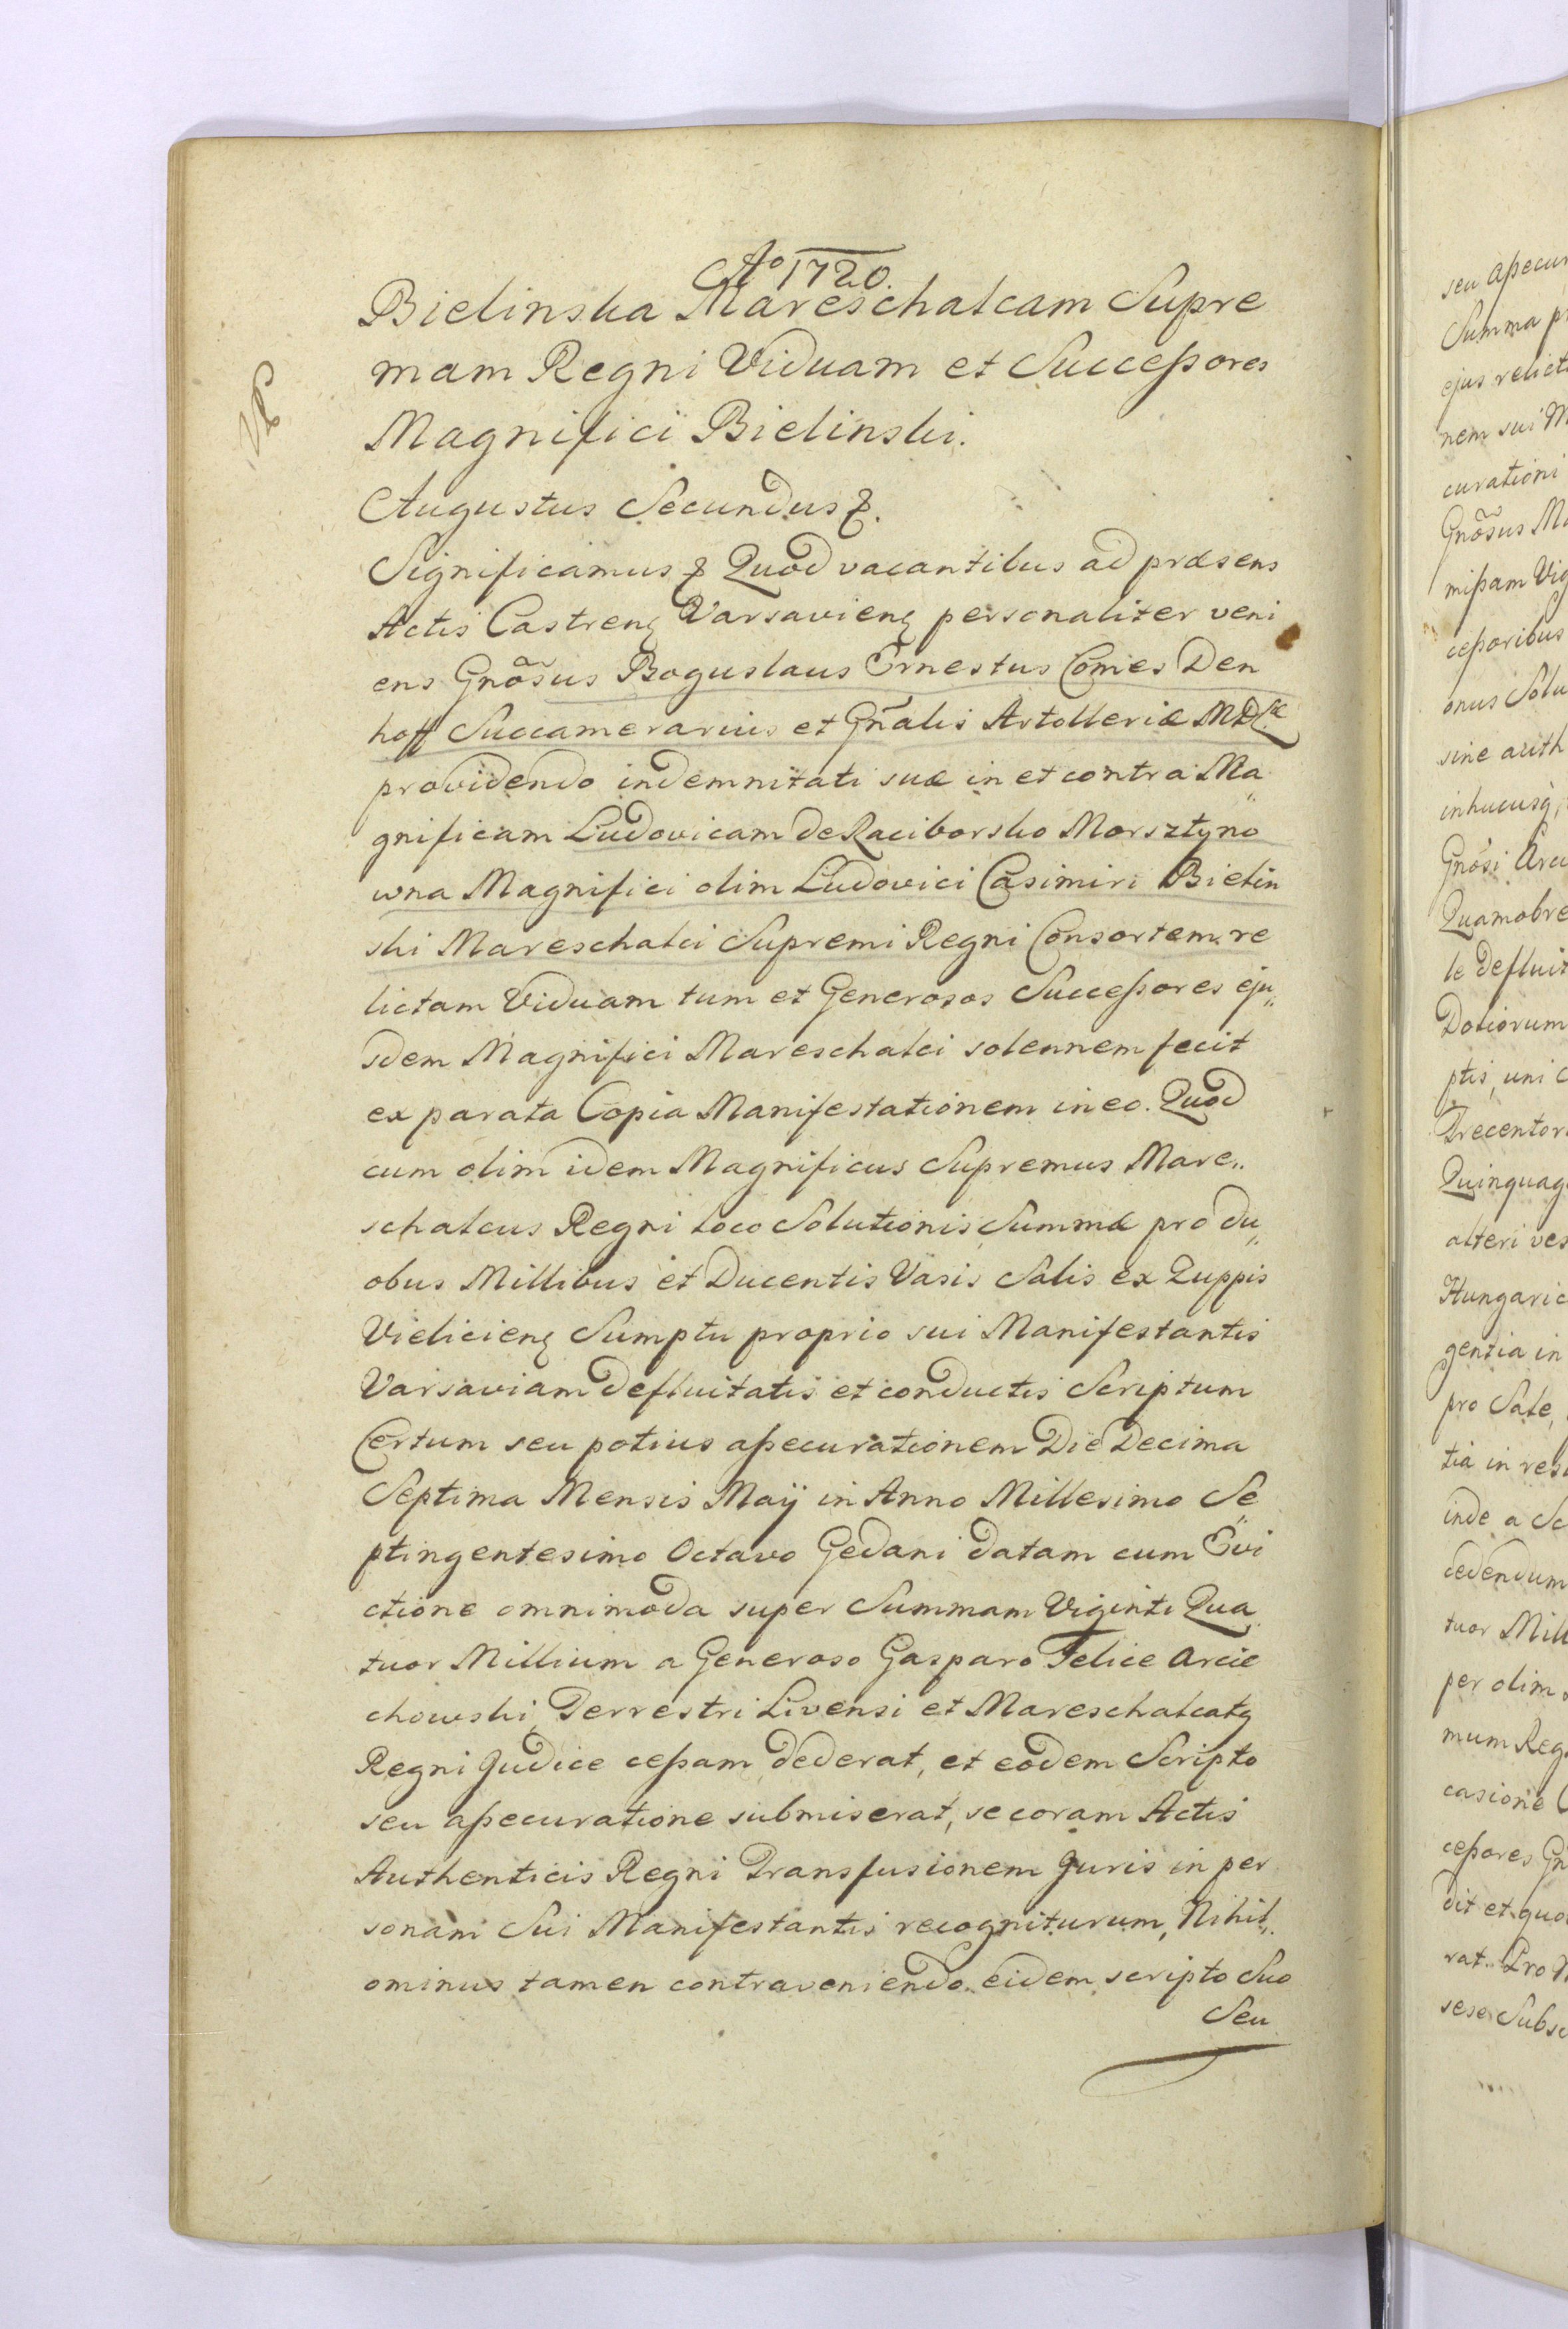 Ao 1720.
Bielinska Mareschalcam Supre
mam Regni Viduam et Succeßores
Magnifici Bielinski.
Augustus Secundus &.
Significamus & Quod vacantibus ad præsens
Actis Castrens Varsaviens personaliter veni
ens Gnõsus Boguslaus Ernestus Comes Den
hoff Succamerarius et Gñalis Artolleriæ MD
providendo indemnitati suæ in et contra Ma
gnificam Ludovicam de Raciborsko Morsztyno
wna Magnifici olim Ludovici Casimiri Bielin
ski Mareschalci Supremi Regni Consortem re
lictam Viduam tum et Generosos Succeßores eju„
sdem Magnifici Mareschalci solennem fecit
ex parata Copia Manifestationem in eo. Quod
cum olim idem Magnificus Supremus Mare„
schalcus Regni loco Solutionis Summæ pro du„
obus Millibus et Ducentis Vasis Salis ex Zuppis
Vieliciens Sumptu proprio sui Manifestantis
Varsaviam defluitatis et conductis Scriptum
Certum seu potius aßecurationem Die Decima
Septima Mensis Maij in Anno Millesimo Se
ptingentesimo Octavo Gedani datam cum Evi
ctione omnimoda super Summam Viginti Qua
tuor Millium a Generoso Gasparo Felice Arcie
chowski Terrestri Livensi et Mareschalcatg
Regni Judice ceßam dederat, et eodem Scripto
seu aßecuratione submiserat, se coram Actis
Authenticis Regni Transfusionem Juris in per
sonam Sui Manifestantis recogniturum, Nihil„
ominus tamen contraveniendo eidem scripto Suo
Seu
seu aßecur
Summa p
ejus relict
nem sui M
curationi
Gnõsus Ma
mißam Vig
ceßoribus
onus Solu
sine auth
inhucusq,
Gnõsi Arci
Quamobre
le defluit
Doliorum
ptis, uni
Trecentor
Quinquag
alteri ves
Hungaric
gentia in
pro Sale,
tia in res
inde a Sc
cedendum
tuor Mill
per olim
mum Reg
casione
ceßores Gn
dit et quo
rat. Pro
sese Subsc